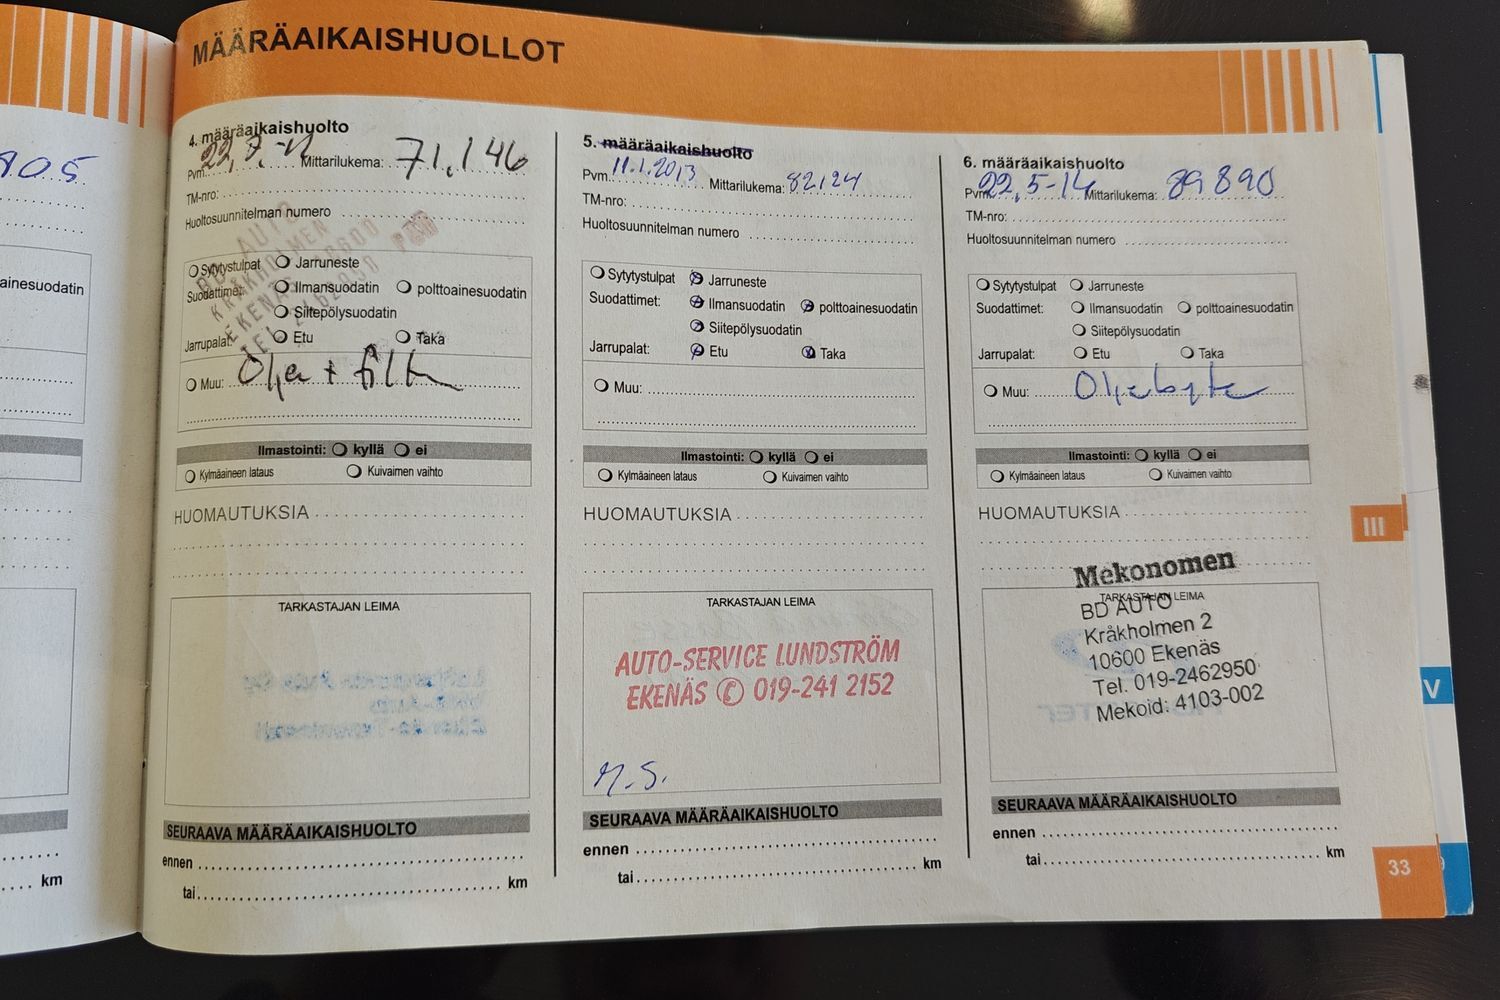 MÄÄRÄAIKAISHUOLLOT
805
ainesuodatin
km
4. määräaikaishuolto
Pvm. Mittarilukema: 71.146
TM-nro:
Huoltosuunnitelman numero
AUTO
KRÅKHOLMEN
EKENÄS
Sytytystulpat Jarruneste
Suodattimet: Ilmansuodatin polttoainesuodatin
Siitepölysuodatin
Jarrupalat: Etu Taka
Muu: Olja + filt
Ilmastointi: kyllä ei
Kylmäaineen lataus Kuivaimen vaihto
HUOMAUTUKSIA
TARKASTAJAN LEIMA
SEURAAVA MÄÄRÄAIKAISHUOLTO
ennen
tai km
5. määräaikaishuolto
Pvm. 11.1.2013 Mittarilukema: 82124
TM-nro:
Huoltosuunnitelman numero
Sytytystulpat Jarruneste
Suodattimet: Ilmansuodatin polttoainesuodatin
Siitepölysuodatin
Jarrupalat: Etu Taka
Muu:
Ilmastointi: kyllä ei
Kylmäaineen lataus Kuivaimen vaihto
HUOMAUTUKSIA
TARKASTAJAN LEIMA
AUTO-SERVICE LUNDSTRÖM
EKENÄS ✆ 019-241 2152
M.S.
SEURAAVA MÄÄRÄAIKAISHUOLTO
ennen
tai km
6. määräaikaishuolto
Pvm. 22,5-14 Mittarilukema: 89890
TM-nro:
Huoltosuunnitelman numero
Sytytystulpat Jarruneste
Suodattimet: Ilmansuodatin polttoainesuodatin
Siitepölysuodatin
Jarrupalat: Etu Taka
Muu: Oljebyte
Ilmastointi: kyllä ei
Kylmäaineen lataus Kuivaimen vaihto
HUOMAUTUKSIA
Mekonomen
TARKASTAJAN LEIMA
BD AUTO
Kråkholmen 2
10600 Ekenäs
Tel. 019-2462950
Mekoid: 4103-002
SEURAAVA MÄÄRÄAIKAISHUOLTO
ennen
tai km
III
V
33